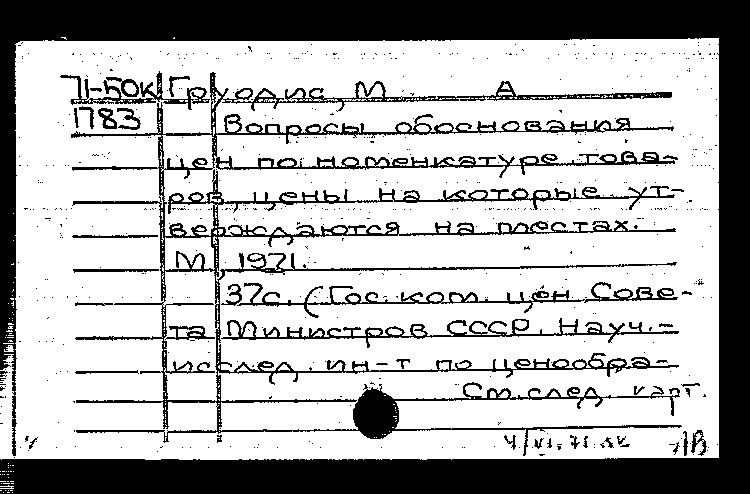 71-50к Груодис, М А
1783 Вопросы обоснования
цен по номенкатуре това-
ров, цены на которые ут-
верждаются на местах.
М., 1971.
37с. (Гос. ком. цен Сове-
та Министров СССР. Науч.-
исслед. ин-т по ценообра-
См. след. карт.